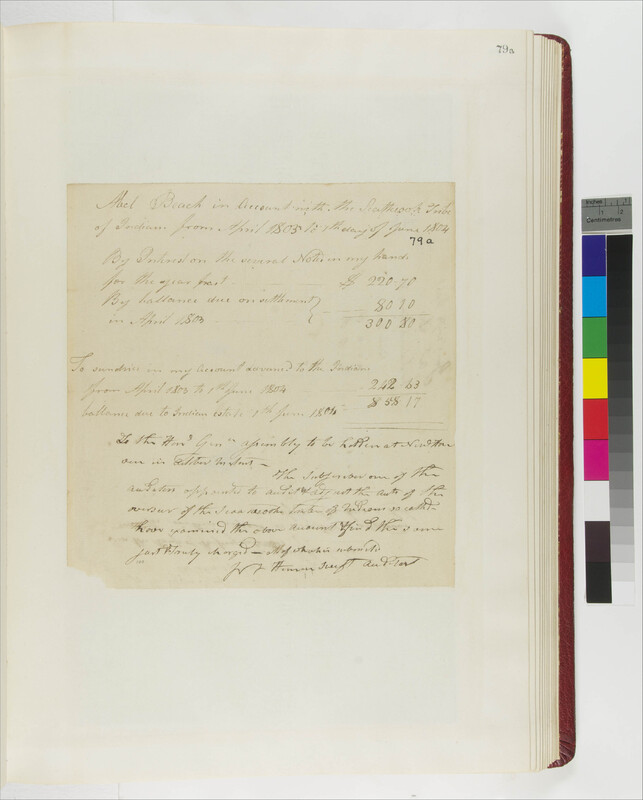 79a
Abel Beach in Account with the Scatticook Tribe
of Indians from April 1803 to 1th day of June 1804
79a
By Intrest on the several Notes in my hand
for the year past $ 220-70
By ballance due on settlement
in April 1803 80 10
300 80
To sundries in my Account accrued to the Indians
from April 1803 to 1th June 1804 242 63
ballance due to Indian estate 1th June 1804 $ 58 17
To the Honl Genll assembly to be holden at New Hav
en in October Instant -
The Subscriber one of the
auditors appointed to audit & the accts of the
overseer of the Scatacotke tribe of Indians so called
have examined the above account & find the same
just & truly charged -
auditor
Inches
1 2
Centimetres